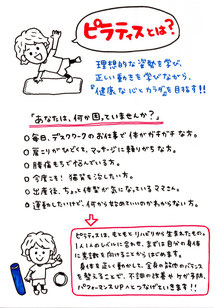 ピラティスとは?
理想的な姿勢を学び、
正しい動きを学びながら、
『健康な心とカラダ』を目指す!!
「あなたは、何か困っていませんか?」
毎日、デスクワークのお仕事で体がガチガチな方。
肩こりがひどくて、マッサージに頼りがちな方。
腰痛もちで悩んでいる方。
今度こそ!猫背を治したい方。
出産後、ちょっと体型が気になっているママさん。
運動したいけど、何から始めたらいいのかわからない方。
ピラティスは、もともとリハビリから生まれたもの。
1人1人のレベルに合わせ、まずは自分の身体
に意識を向けることからはじめます。
身体を正しく動かし、全身の筋肉のバランス
を整えることで、不調の改善やケガ予防、
パフォーマンスUPへとつなげていきます!!